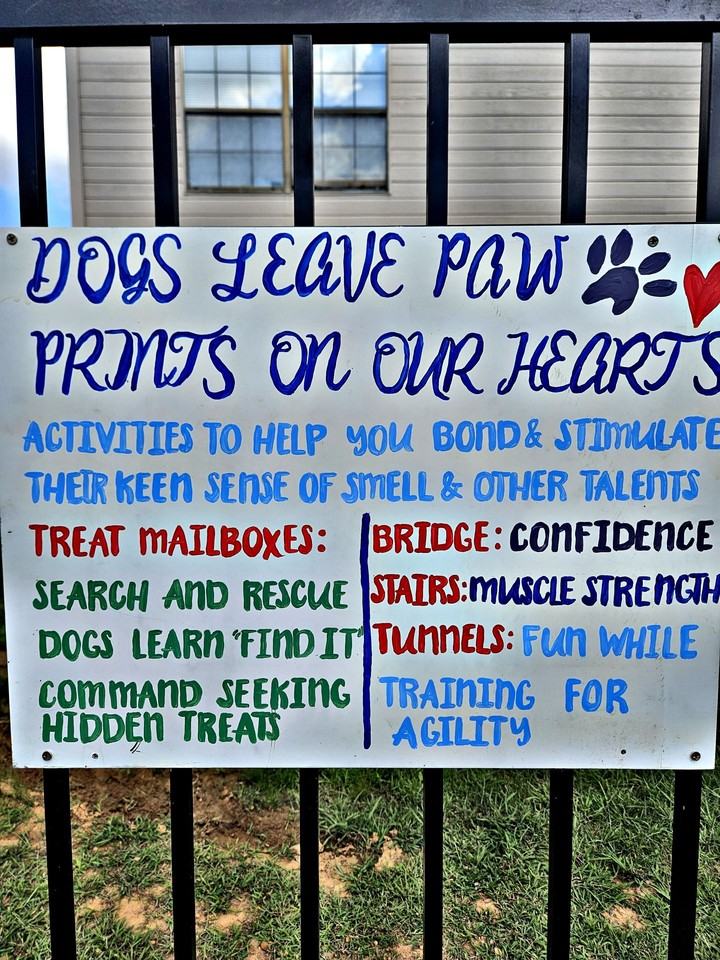 DOGS LEAVE PAW
PRINTS ON OUR HEARTS
ACTIVITIES TO HELP YOU BOND & STIMULATE
THEIR KEEN SENSE OF SMELL & OTHER TALENTS
TREAT MAILBOXES:
SEARCH AND RESCUE
DOGS LEARN "FIND IT"
COMMAND SEEKING
HIDDEN TREATS
BRIDGE: CONFIDENCE
STAIRS: MUSCLE STRENGTH
TUNNELS: FUN WHILE
TRAINING FOR
AGILITY